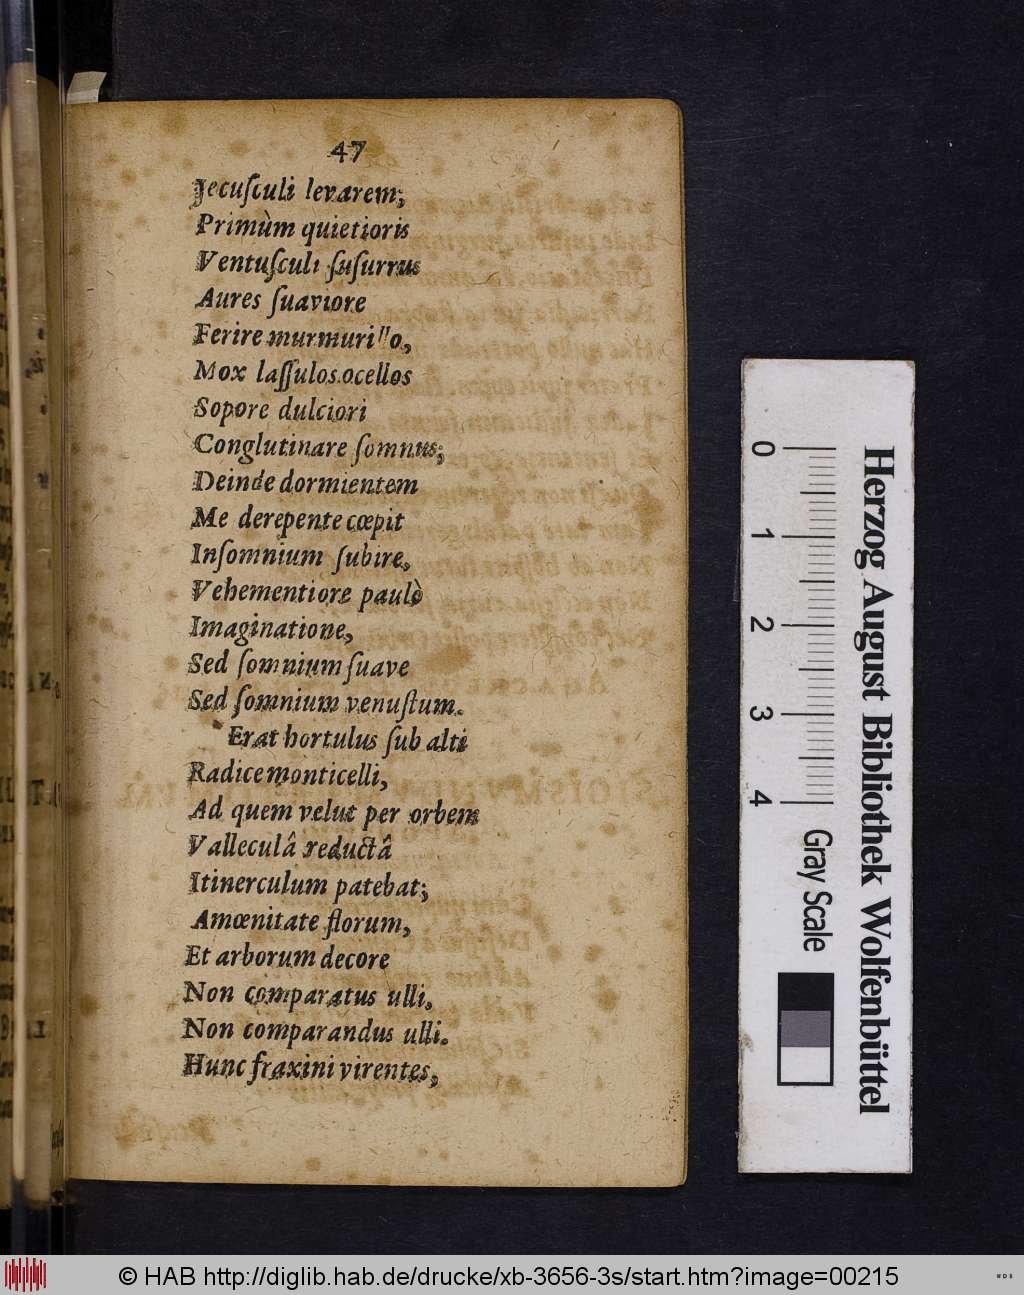 47
Jecuſculi levarem;
Primùm quietioris
Ventuſculi ſuſurrus
Aures ſuaviore
Ferire murmurillo,
Mox laſſulos ocellos
Sopore dulciori
Conglutinare ſomnus;
Deinde dormientem
Me derepente cœpit
Inſomnium ſubire,
Vehementiore paulò
Imaginatione,
Sed ſomnium ſuave
Sed ſomnium venuſtum.
Erat hortulus ſub alti
Radice monticelli,
Ad quem velut per orbem
Valleculâ reductâ
Itinerculum patebat;
Amœnitate florum,
Et arborum decore
Non comparatus ulli,
Non comparandus ulli.
Hunc fraxini virentes,
0 1 2 3 4
Gray Scale
Herzog August Bibliothek Wolfenbüttel
© HAB http://diglib.hab.de/drucke/xb-3656-3s/start.htm?image=00215